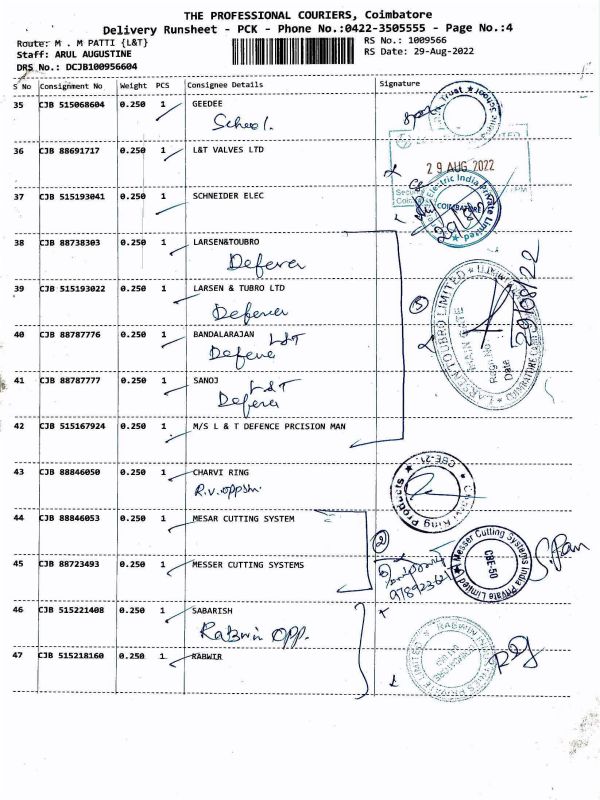 THE PROFESSIONAL COURIERS, Coimbatore
Delivery Runsheet - PCK - Phone No.:0422-3505555 - Page No.:4
Route: M . M PATTI {L&T}
RS No.: 1009566
Staff: ARUL AUGUSTINE
RS Date: 29-Aug-2022
DRS No.: DCJB100956604
S No Consignment No Weight PCS Consignee Details Signature
35 CJB 515068604 0.250 1 GEEDEE
School.
36 CJB 88691717 0.250 1 L&T VALVES LTD
29 AUG 2022
37 CJB 515193041 0.250 1 SCHNEIDER ELEC
Electric India Private Limited
COIMBATORE
29/8/22
38 CJB 88738303 0.250 1 LARSEN&TOUBRO
39 CJB 515193022 0.250 1 LARSEN & TUBRO LTD
40 CJB 88787776 0.250 1 BANDALARAJAN
L&T
41 CJB 88787777 0.250 1 SANOJ
L&T
LARSEN & TOUBRO LIMITED
MAIN GATE
Date
29/08/22
42 CJB 515167924 0.250 1 M/S L & T DEFENCE PRCISION MAN
43 CJB 88846050 0.250 1 CHARVI RING
CBE-21
Ring Products
44 CJB 88846053 0.250 1 MESAR CUTTING SYSTEM
2
45 CJB 88723493 0.250 1 MESSER CUTTING SYSTEMS
Messer Cutting Systems India Private Limited
CBE-50
46 CJB 515221408 0.250 1 SABARISH
Rabwin Opp.
47 CJB 515218160 0.250 1 RABWIR